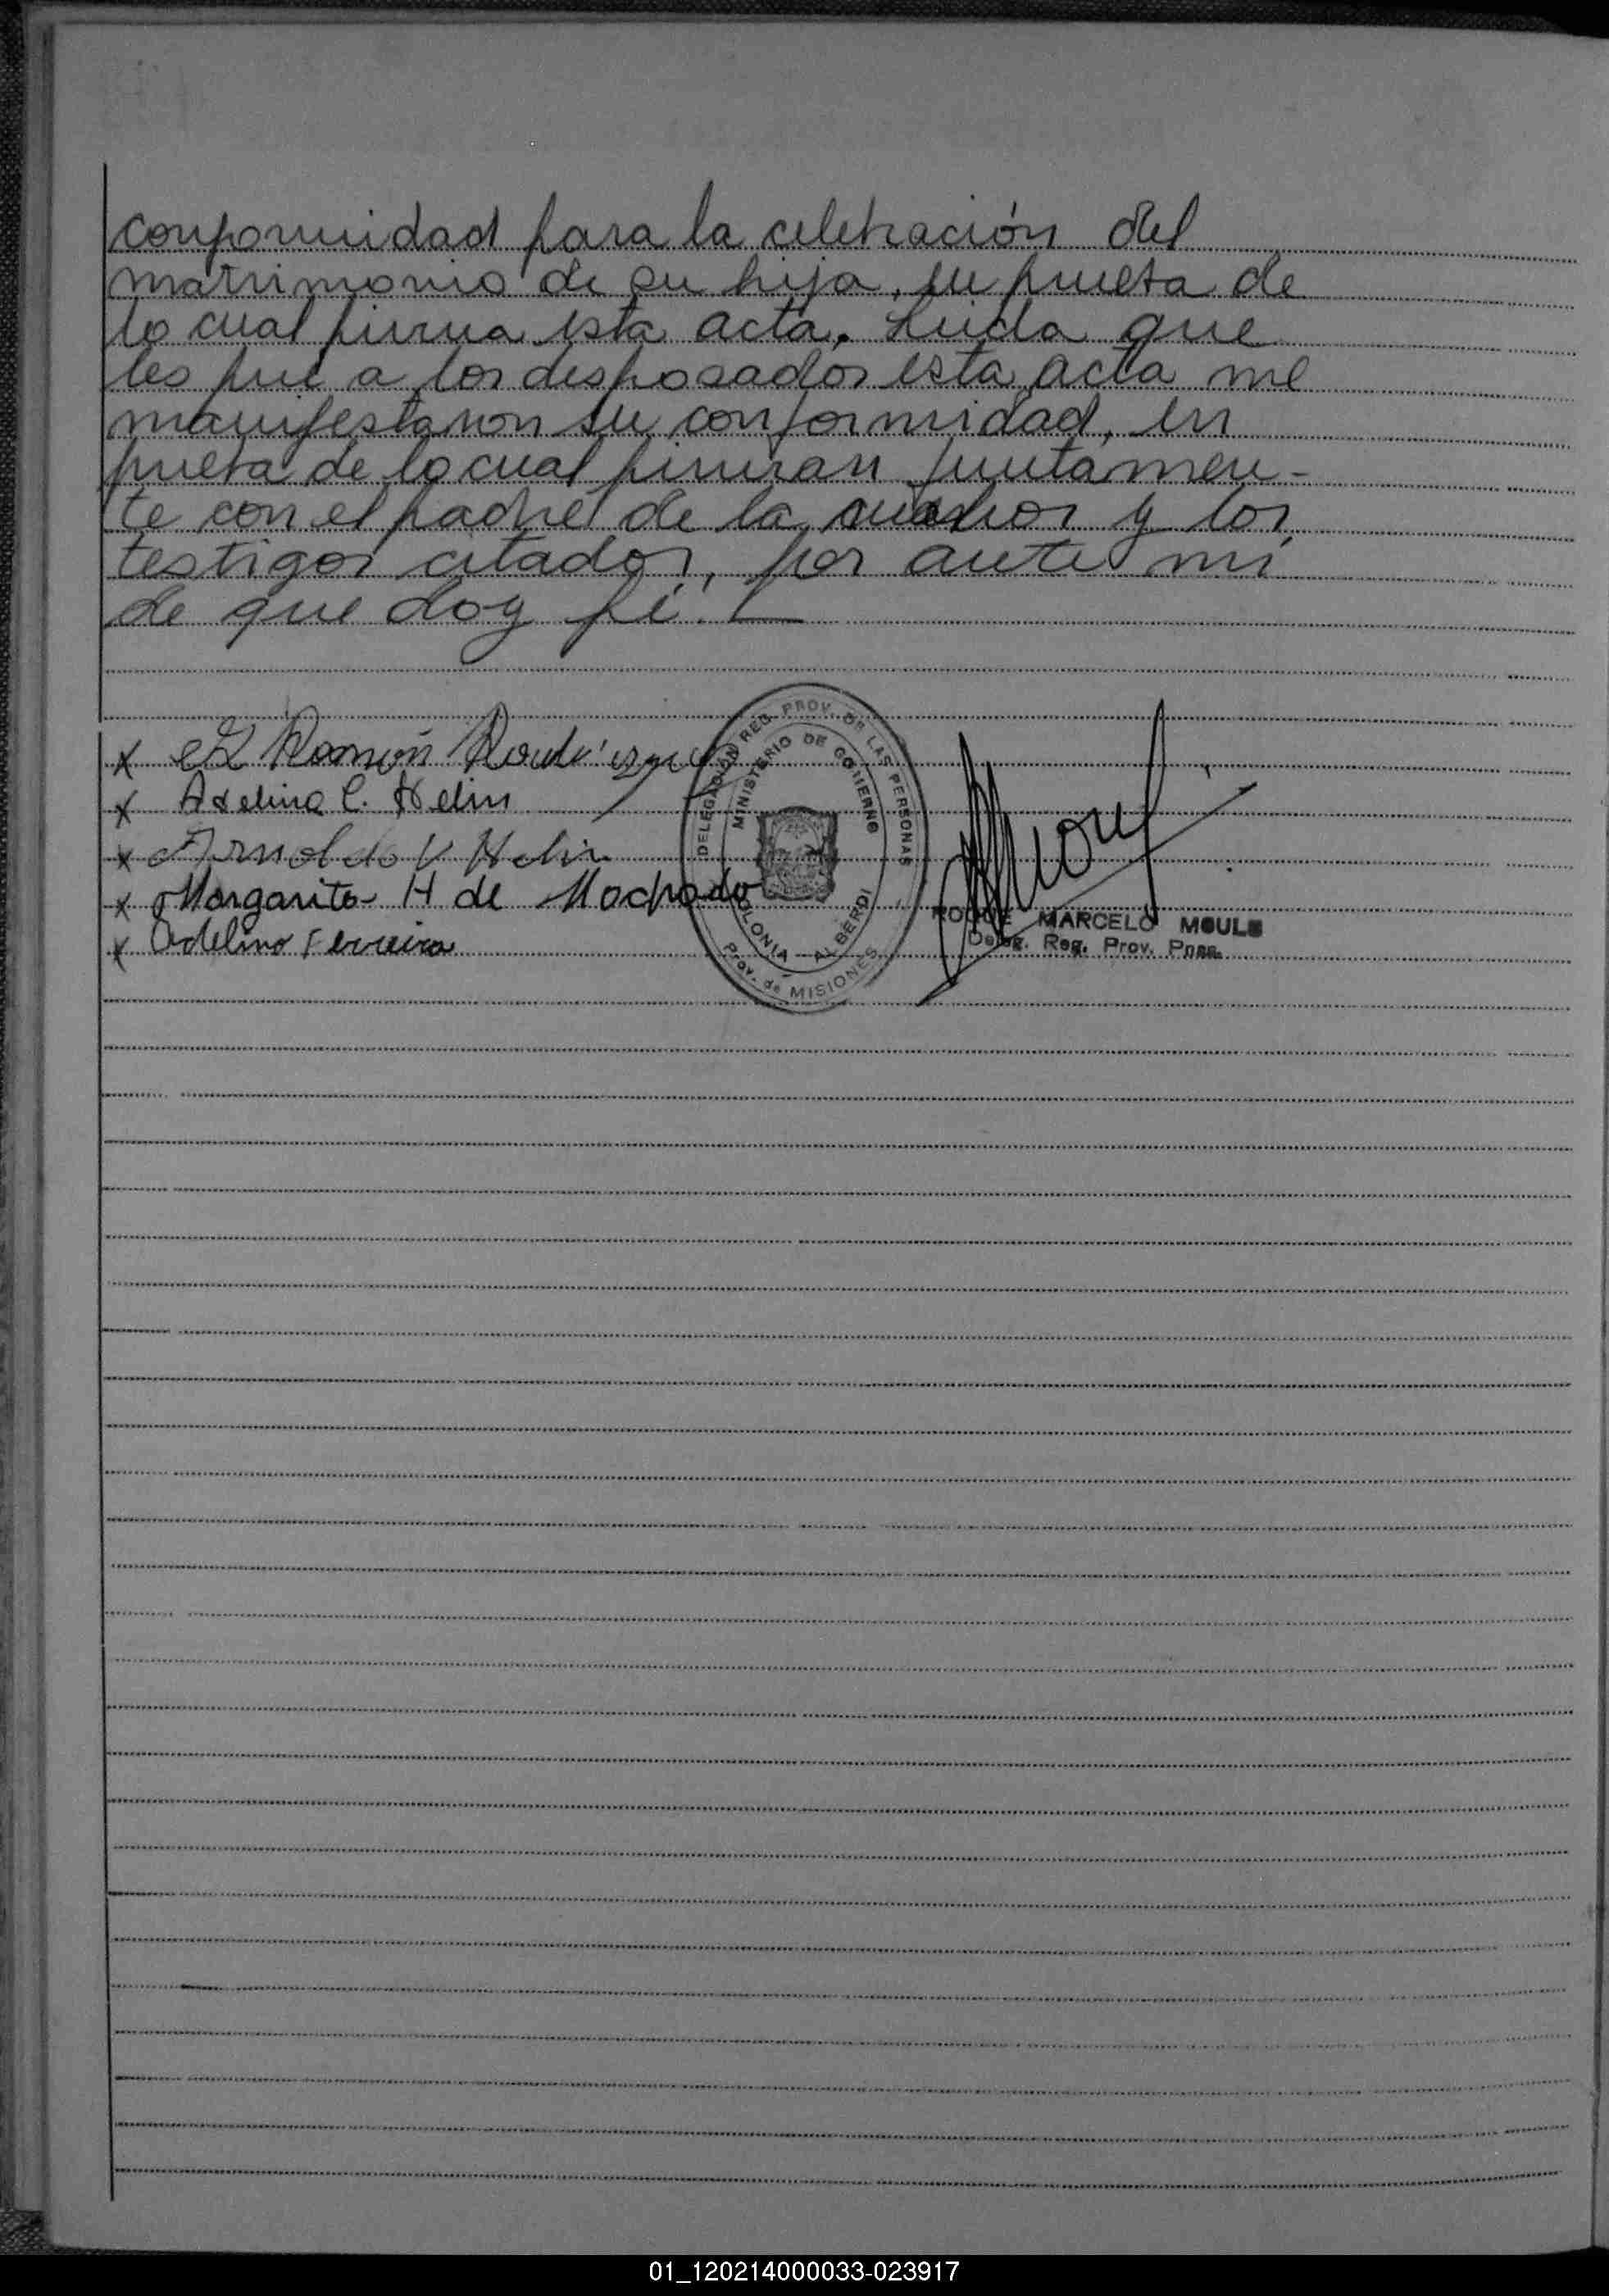 conformidad para la celebración del
matrimonio de su hija, en prueba de
lo cual firma esta acta. Leida que
les fué a los desposados esta acta me
manifestaron su conformidad, en
prueba de lo cual firman juntamen-
te con el padre de la y los
testigos citados, por ante mí
de que doy fé.
x Ramón
x Adelina C. Helm
x Arnoldo V Helm
x Margarita H de Machado
x Adelino Ferreira
DELEGACIÓN REG. PROV. DE LAS PERSONAS
MINISTERIO DE GOBIERNO
COLONIA - ALBERDI
Prov. de MISIONES
ROQUE MARCELO MOULE
Deleg. Reg. Prov. Pnas.
01_120214000033-023917